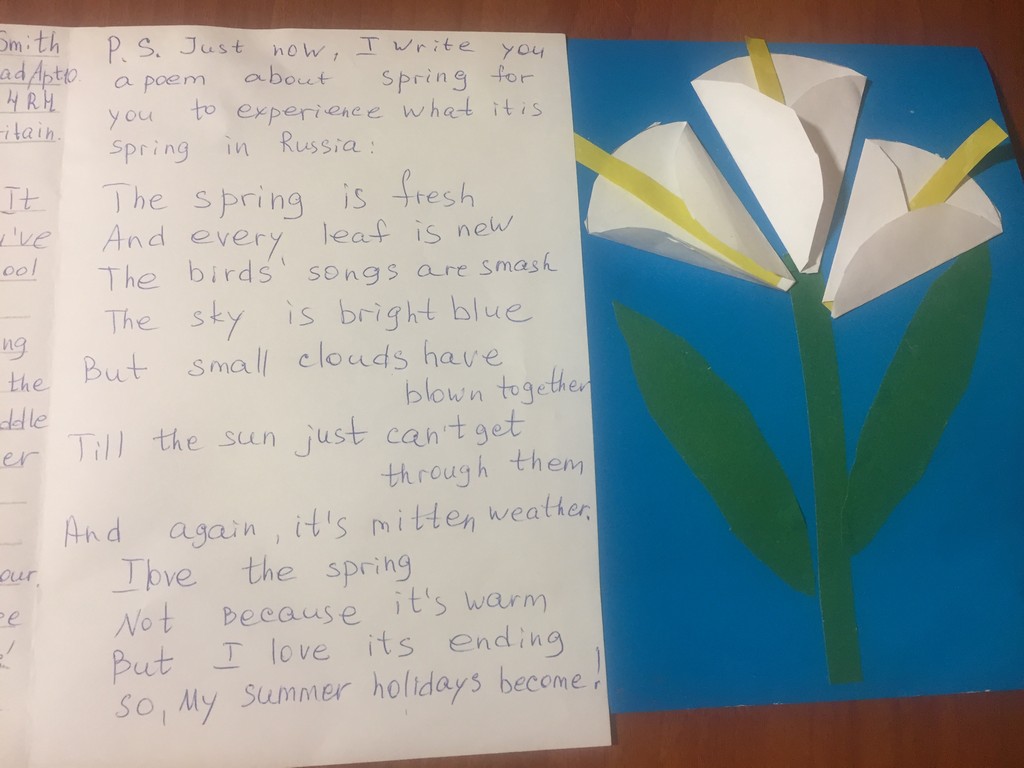 Smith
4 RH
It
ool
ng
the
er
P.S. Just now, I write you
a poem about spring for
you to experience what it is
spring in Russia:
The spring is fresh
And every leaf is new
The birds' songs are smash
The sky is bright blue
But small clouds have
blown together
Till the sun just can't get
through them
And again, it's mitten weather.
I love the spring
Not because it's warm
But I love its ending
So, My summer holidays become!